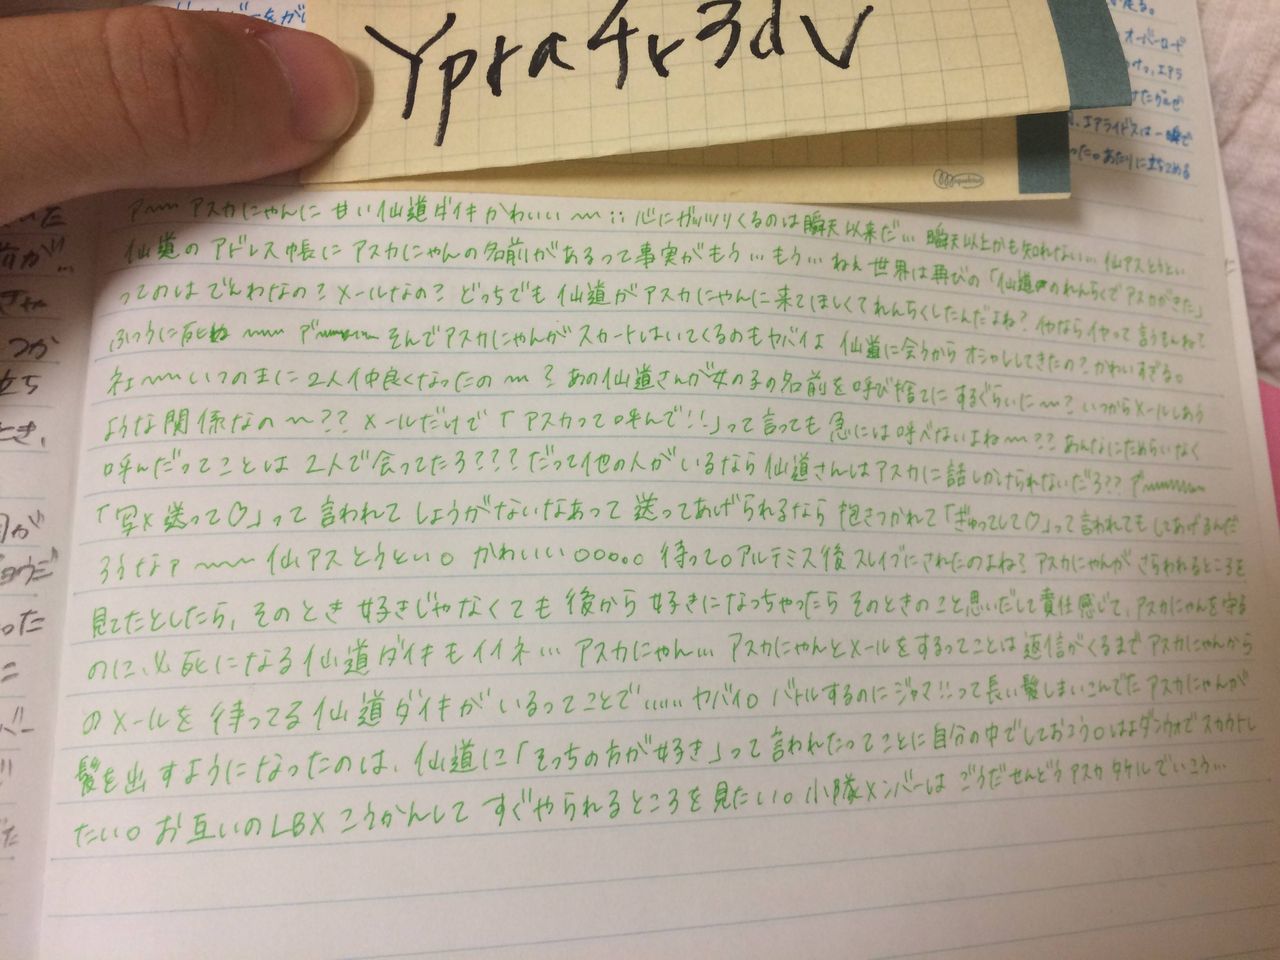 Ypra4r3dv
オーバーロード
エアライドスは一瞬で
った。あたりに立ちこめる
ア〜〜 アスカにゃんに甘い仙道ダイキかわいい〜〜:: 心にガッツリくるのは瞬天以来だ… 瞬天以上かも知れない… 仙アスとうとい
仙道のアドレス帳にアスカにゃんの名前があるって事実がもう…もう… ねぇ世界は再びの「仙道のれんらくでアスカがきた」
ってのはでんわなの?メールなの?どっちでも仙道がアスカにゃんに来てほしくてれんらくしたんだよね?イヤならイヤって言うもんね?
ふつうに死ぬ〜〜ア゛〜〜 そんでアスカにゃんがスカートはいてくるのもヤバイよ 仙道に会うからオシャレしてきたの?かわいすぎる。
ネェ〜〜いつの まに2人仲良くなったの〜?あの仙道さんが女の子の名前を呼び捨てにするぐらいに〜?いつからメールしあう
ような関係なの〜??メールだけで「アスカって呼んで!!」って言っても急には呼べないよね〜??あんなにためらいなく
呼んだってことは2人で会ってたろ???だって他の人がいるなら仙道さんはアスカに話しかけられないだろ??ア゛〜〜
「写メ送って♡」って言われてしょうがないなあって送ってあげられるなら抱きつかれて「ぎゅってして♡」って言われてもしてあげるんだ
ろうなァ〜〜仙アスとうとい。かわいい。。。。。待って。アルテミス後スレイブにされたのよね?アスカにゃんがさらわれるところを
見てたとしたら、そのとき好きじゃなくても後から好きになっちゃったらそのときのこと思いだして責任感じて、アスカにゃんを守る
のに必死になる仙道ダイキもイイネ… アスカにゃん… アスカにゃんとメールをするってことは返信がくるまでアスカにゃんから
のメールを待ってる仙道ダイキがいるってことで……ヤバイ。バトルするのにジャマ!!って長い髪しまいこんでたアスカにゃんが
髪を出すようになったのは、仙道に「そっちの方が好き」って言われたってことに自分の中でしておこう。はよダンウォでスカウトし
たい。お互いのLBXこうかんしてすぐやられるところを見たい。小隊メンバーはごうだせんどうアスカタケルでいこう…